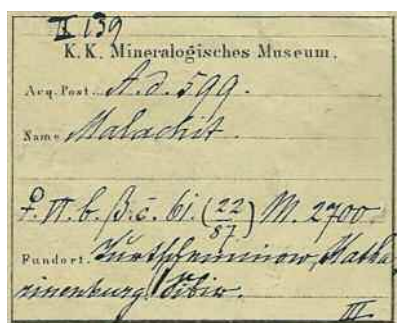 II 139
K. K. Mineralogisches Museum.
Acq. Post. A. d. 599.
Name Malachit.
♀. VI. b. β. c. 61. (22/87) M. 2700.
Fundort. Katha
rinenburg, Sibir.
III.